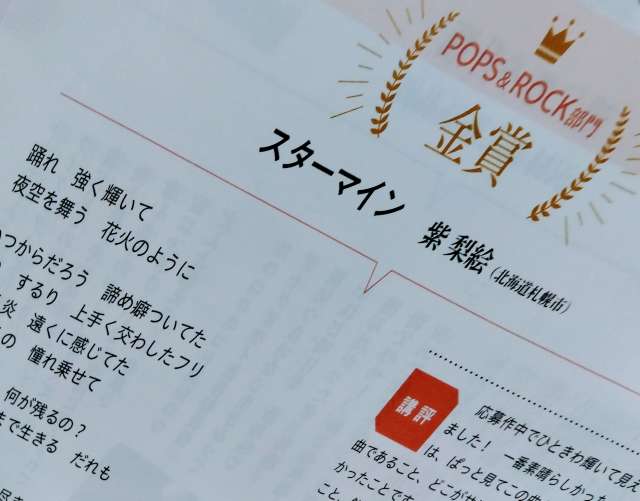 POPS&ROCK部門
金賞
スターマイン 紫 梨絵（北海道札幌市）
踊れ 強く輝いて
夜空を舞う 花火のように
つからだろう 諦め癖ついてた
するり 上手く交わしたフリ
炎 遠くに感じてた
の 憧れ乗せて
何が残るの？
まで生きる だれも
講評
応募作中でひときわ輝いて見え
ました！ 一番素晴らしかった
は、ぱっと見てこの
曲であること、どこが
かったことです
こと、